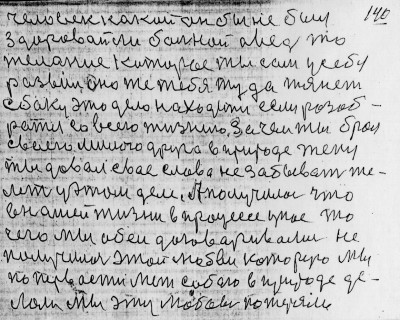 140
человек какой он бы не был
здоровай ли больной а вед это
желание которое ты сам у себу
развил оно же тебя туда тянет
с боку это дело находит если розоб-
ратся во всей жизнию. Зачем ты брал
своего милого друга в природе жену
ты довал свае слово не забывать же-
лет у этом деле, А получилос что
в нашей жизни в процессе у нас то
чего мы обеи договаривалис не
получилос этой любви которую мы
по первасти лет собою в природе де-
лали мы эту любовь потеряли